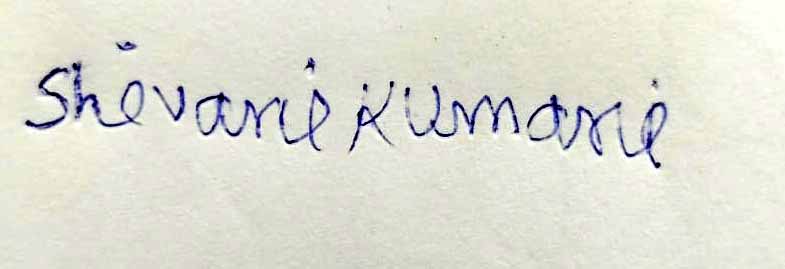 Shivarie Kumarie